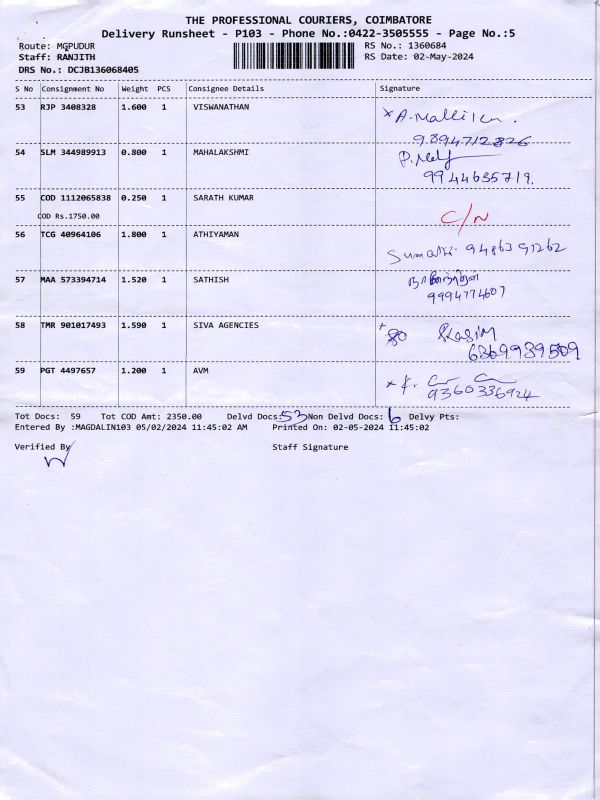 THE PROFESSIONAL COURIERS, COIMBATORE
Delivery Runsheet - P103 - Phone No.:0422-3505555 - Page No.:5
Route: MGPUDUR RS No.: 1360684
Staff: RANJITH RS Date: 02-May-2024
DRS No.: DCJB136068405
S No Consignment No Weight PCS Consignee Details Signature
53 RJP 3408328 1.600 1 VISWANATHAN
9894712826
54 SLM 344989913 0.800 1 MAHALAKSHMI
9944635719.
55 COD 1112065838 0.250 1 SARATH KUMAR
COD Rs.1750.00 C/N
56 TCG 40964106 1.800 1 ATHIYAMAN
9486391262
57 MAA 573394714 1.520 1 SATHISH
9994774607
58 TMR 901017493 1.590 1 SIVA AGENCIES
6369939509
59 PGT 4497657 1.200 1 AVM
9360336924
Tot Docs: 59 Tot COD Amt: 2350.00 Delvd Docs: 53 Non Delvd Docs: 6 Delvy Pts:
Entered By :MAGDALIN103 05/02/2024 11:45:02 AM Printed On: 02-05-2024 11:45:02
Verified By Staff Signature